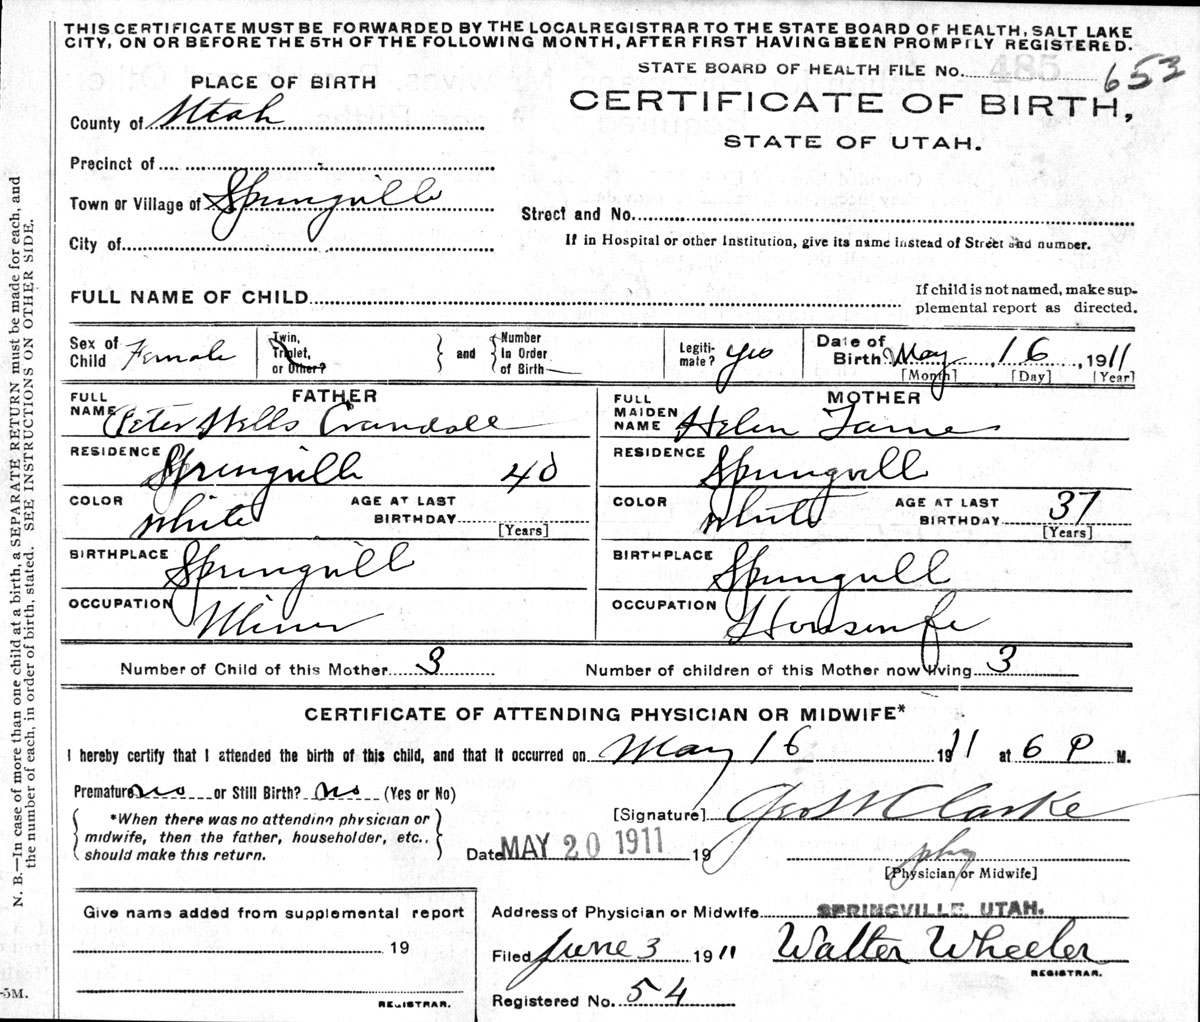 THIS CERTIFICATE MUST BE FORWARDED BY THE LOCAL REGISTRAR TO THE STATE BOARD OF HEALTH, SALT LAKE
CITY, ON OR BEFORE THE 5TH OF THE FOLLOWING MONTH, AFTER FIRST HAVING BEEN PROMPTLY REGISTERED.
STATE BOARD OF HEALTH FILE NO. 485 653
PLACE OF BIRTH
CERTIFICATE OF BIRTH,
STATE OF UTAH.
County of Utah
Precinct of
Town or Village of Springville
Street and No.
City of
If in Hospital or other Institution, give its name instead of Street and number.
FULL NAME OF CHILD
If child is not named, make sup-
plemental report as directed.
Sex of Child Female
Twin, Triplet, or Other?
and
Number In Order of Birth
Legiti-mate? yes
Date of Birth May 16, 1911
[Month] [Day] [Year]
FATHER
FULL NAME Peter Wells Crandall
RESIDENCE Springville 40
COLOR White AGE AT LAST BIRTHDAY
[Years]
BIRTHPLACE Springvill
OCCUPATION Miner
MOTHER
FULL MAIDEN NAME Helen
RESIDENCE Springvill
COLOR White AGE AT LAST BIRTHDAY 37
[Years]
BIRTHPLACE Springvill
OCCUPATION Housewife
Number of Child of this Mother 3
Number of children of this Mother now living 3
CERTIFICATE OF ATTENDING PHYSICIAN OR MIDWIFE*
I hereby certify that I attended the birth of this child, and that it occurred on May 16 1911 at 6 P M.
Premature no or Still Birth? No (Yes or No)
*When there was no attending physician or
midwife, then the father, householder, etc.,
should make this return.
[Signature] Geo W Clarke
Date MAY 20 1911 19
phy
[Physician or Midwife]
Give name added from supplemental report
19
REGISTRAR.
Address of Physician or Midwife SPRINGVILLE, UTAH.
Filed June 3 1911 Walter Wheeler
REGISTRAR.
Registered No. 54
N. B.—In case of more than one child at a birth, a SEPARATE RETURN must be made for each, and
the number of each, in order of birth, stated. SEE INSTRUCTIONS ON OTHER SIDE.
-5M.